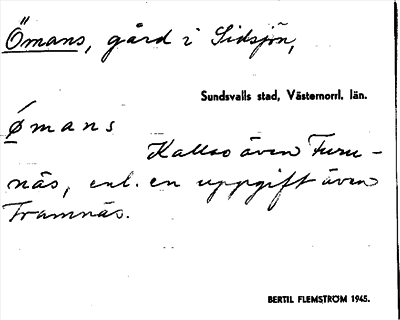 Ömans, gård i Sidsjön,
Sundsvalls stad, Västernorrl. län.
Ǿmans
Kallas även Furu-
näs, enl. en uppgift även
Framnäs.
BERTIL FLEMSTRÖM 1945.